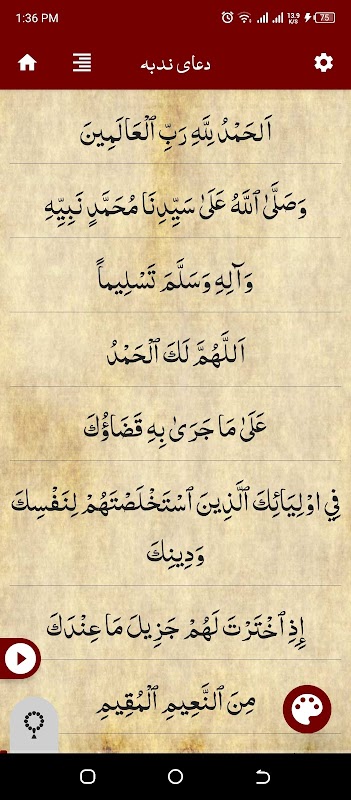 1:36 PM 13.9 K/S 75
دعای ندبه
اَلْحَمْدُ لِلَّهِ رَبِّ ٱلْعَالَمِينَ
وَصَلَّىٰ ٱللَّهُ عَلَىٰ سَيِّدِنَا مُحَمَّدٍ نَبِيِّهِ
وَآلِهِ وَسَلَّمَ تَسْلِيماً
اَللَّهُمَّ لَكَ ٱلْحَمْدُ
عَلَىٰ مَا جَرَىٰ بِهِ قَضَاؤُكَ
فِي اوْلِيَائِكَ ٱلَّذِينَ ٱسْتَخْلَصْتَهُمْ لِنَفْسِكَ
وَدِينِكَ
إِذِ ٱخْتَرْتَ لَهُمْ جَزِيلَ مَا عِنْدَكَ
مِنَ ٱلنَّعِيمِ ٱلْمُقِيمِ